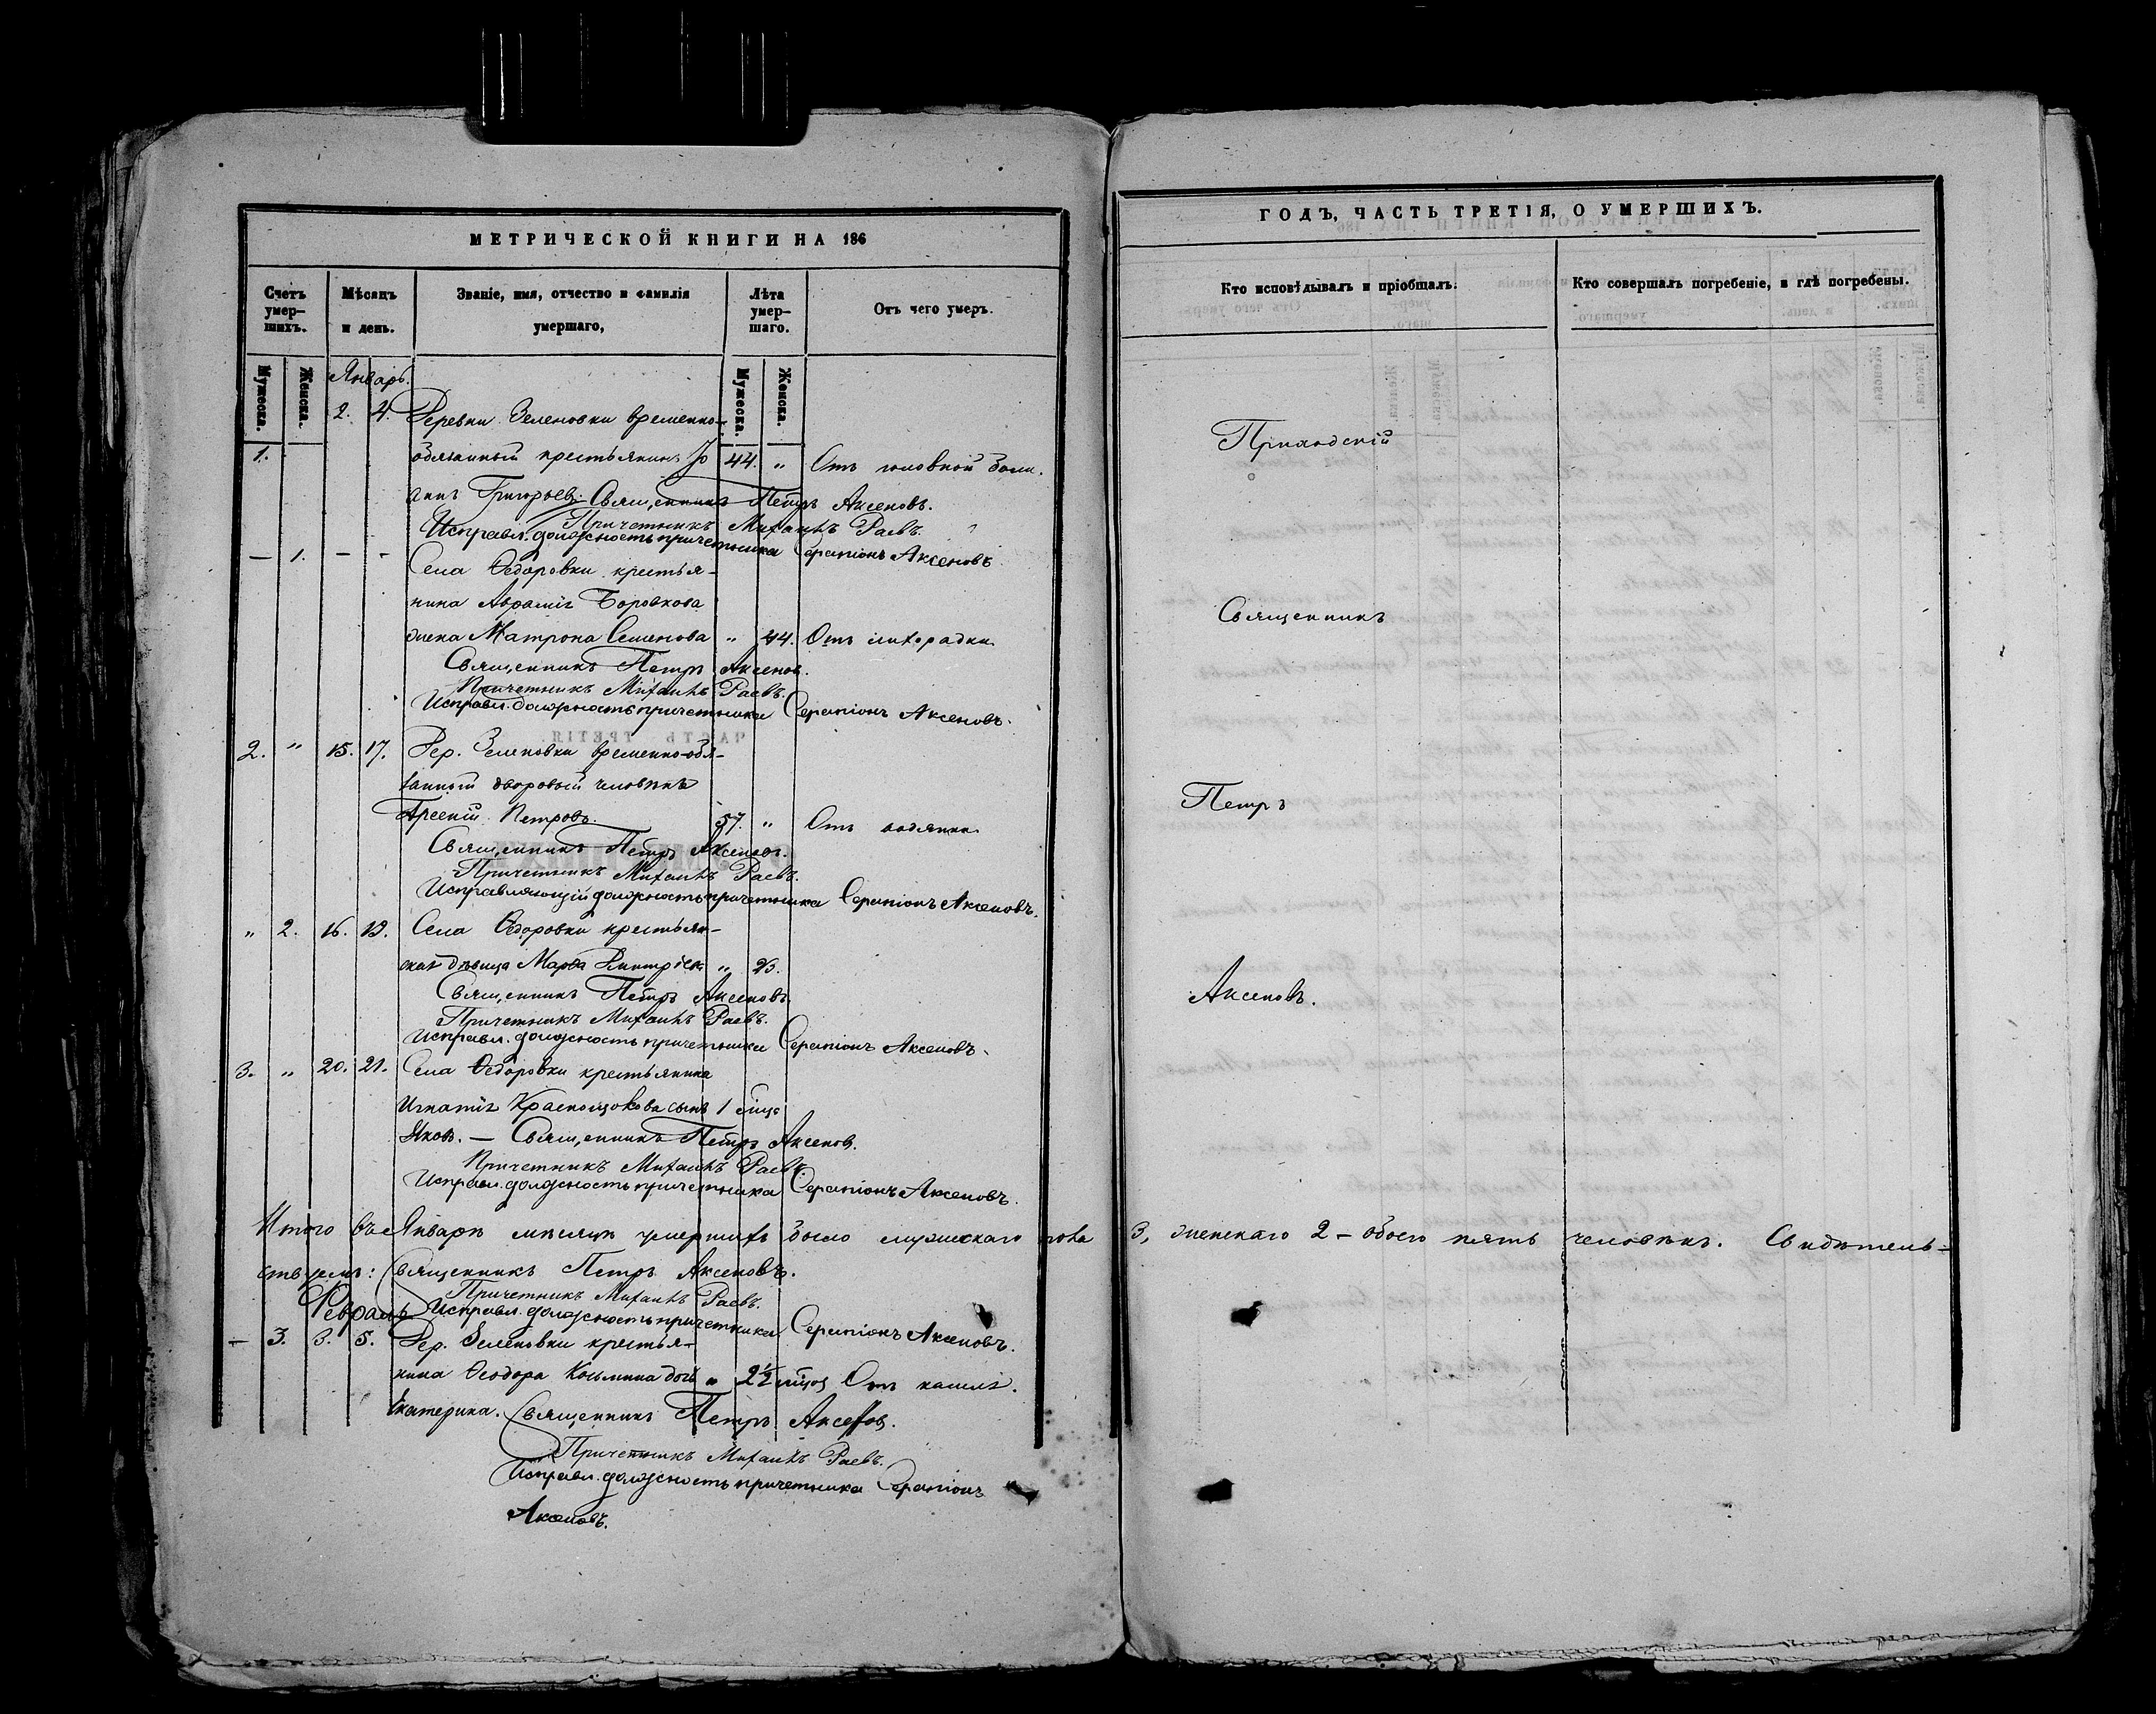 МЕТРИЧЕСКОЙ КНИГИ НА 186
Счетъ умер-шихъ.
Мѣсяцъ и день.
Званіе, имя, отчество и фамилія умершаго,
Лѣта умер-шаго.
Отъ чего умеръ.
Мужеска.
Женска.
Мужеска.
Женска.
Январь.
2. 4. Деревни Зеленовки временно-
1. обязанный крестьянинъ Іо 44. „ Отъ головной боли.
аннъ Григорьев. Священникъ Петръ Аксеновъ.
Причетникъ Михаилъ Раевъ.
Исправл. должность причетника Серапіонъ Аксеновъ
— 1. — - Села Ѳедоровки крестья-
нина Аврамія Боровкова
жена Матрона Семенова „ 44. Отъ лихорадки.
Священникъ Петръ Аксенов.
Причетникъ Михаилъ Раевъ.
Исправл. должность причетника Серапіонъ Аксеновъ.
2. „ 15. 17. Дер. Зеленовки временно-обя-
занный дворовый человѣкъ
Арсеній Петровъ. 57. „ Отъ водянки.
Священникъ Петръ Аксеновъ.
Причетникъ Михаилъ Раевъ.
Исправляющій должность причетника Серапіонъ Аксеновъ.
„ 2. 16. Села Ѳедоровки крестьян-
ская дѣвица Марѳа „
Священникъ Петръ Аксеновъ.
Причетникъ Михаилъ Раевъ.
Исправл. должность причетника Серапіонъ Аксеновъ.
3. „ 20. 21. Села Ѳедоровки крестьянина
Игнатія Краснощокова сынъ 1 мѣся
Яков. — Священникъ Петръ Аксенов.
Причетникъ Михаилъ Раевъ.
Исправл. должность причетника Серапіонъ Аксеновъ.
Итого въ Январѣ мѣсяцѣ умершихъ было мужескаго пола
ствуемъ: Священникъ Петръ Аксеновъ.
Причетникъ Михаилъ Раевъ.
Февраль Исправл. должность причетника Серапіонъ Аксеновъ.
— 3. 3. 5. Дер. Зеленовки крестья-
нина Ѳеодора Косьмина дочь „ 2½ Отъ кашля.
Екатерина. Священникъ Петръ Аксенов.
Причетникъ Михаилъ Раевъ.
Исправл. должность причетника Серапіонъ
Аксеновъ.
ГОДЪ, ЧАСТЬ ТРЕТІЯ, О УМЕРШИХЪ.
Кто исповѣдывалъ и пріобщалъ.
Кто совершалъ погребеніе, и гдѣ погребены.
Приходскій
Священникъ
Петръ
Аксеновъ.
3, женскаго 2 – обоего пять человѣкъ. Свидѣтель-